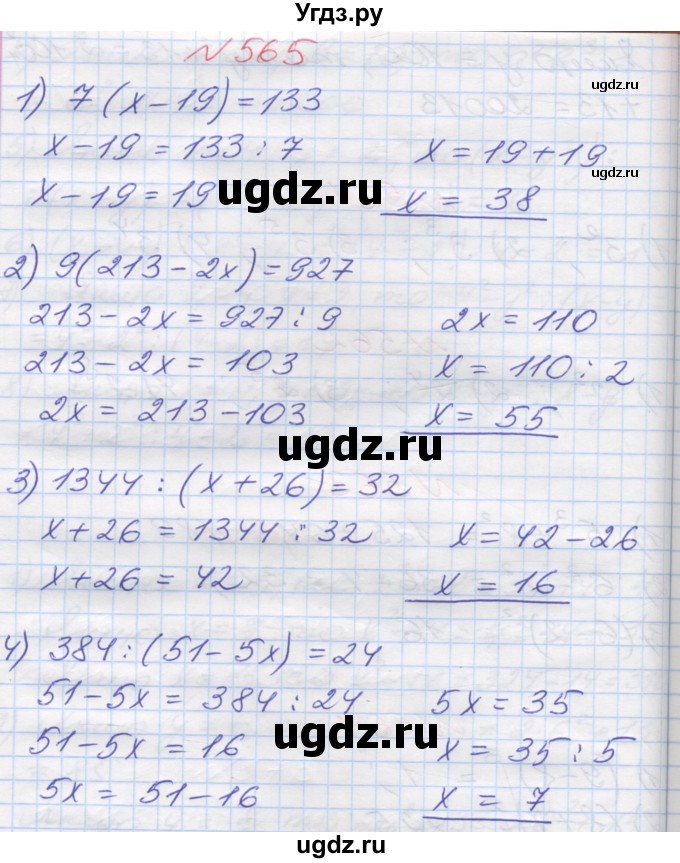 Угдз.ру
№ 565
1) 7 (x – 19) = 133
x – 19 = 133 : 7
x – 19 = 19
x = 19 + 19
x = 38
ugdz.ru
ugdz.ru
2) 9(213 – 2x) = 927
213 – 2x = 927 : 9
213 – 2x = 103
2x = 213 – 103
2x = 110
x = 110 : 2
x = 55
ugdz.ru
ugdz.ru
3) 1344 : (x + 26) = 32
x + 26 = 1344 : 32
x + 26 = 42
x = 42 – 26
x = 16
4) 384 : (51 – 5x) = 24
51 – 5x = 384 : 24
51 – 5x = 16
5x = 51 – 16
5x = 35
x = 35 : 5
x = 7
ugdz.ru
ugdz.ru
ugdz.ru